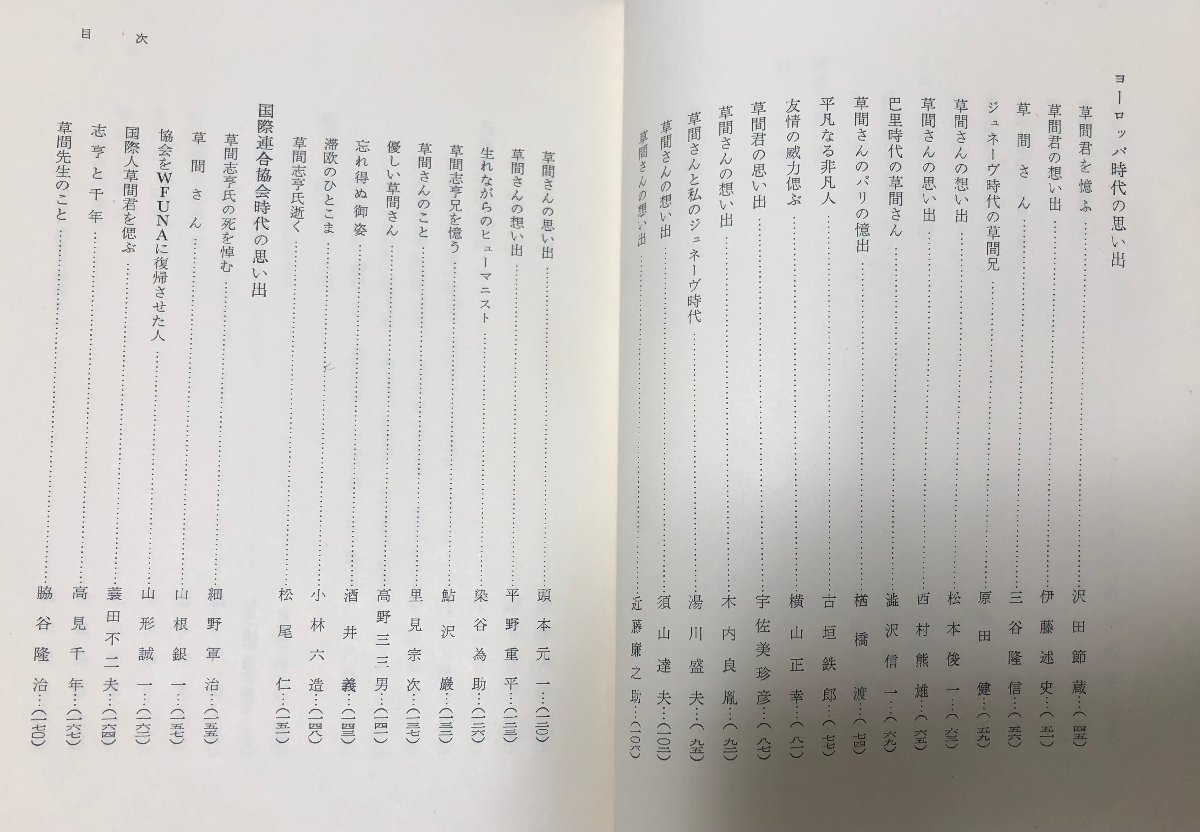 ヨーロッパ時代の思い出
草間君を憶ふ……沢田節蔵…(四五)
草間君の想い出……伊藤述史…(五一)
草間さん……三谷隆信…(五六)
ジュネーヴ時代の草間兄……原田健…(五九)
草間さんの想い出……松本俊一…(六三)
草間さんの思い出……西村熊雄…(六五)
巴里時代の草間さん……澁沢信一…(六九)
草間さんのパリの憶出……楢橋渡…(七四)
平凡なる非凡人……古垣鉄郎…(七七)
友情の威力偲ぶ……横山正幸…(八一)
草間君の思い出……宇佐美珍彦…(八七)
草間さんの想い出……木内良胤…(九二)
草間さんと私のジュネーヴ時代……湯川盛夫…(九五)
草間さんの想い出……須山達夫…(一〇二)
草間さんの想い出……近藤廉之助…(一〇六)
目次
草間さんの思い出……頭本元一…(一二〇)
草間さんの想い出……平野重平…(一二三)
生れながらのヒューマニスト……染谷為助…(一二六)
草間志亨兄を憶う……鮎沢巌…(一三二)
草間さんのこと……里見宗次…(一三七)
優しい草間さん……高野三三男…(一四一)
忘れ得ぬ御姿……酒井義…(一四三)
滞欧のひとこま……小林六造…(一四八)
草間志亨氏逝く……松尾仁…(一五一)
国際連合協会時代の思い出
草間志亨氏の死を悼む……細野軍治…(一五五)
草間さん……山根銀一…(一五七)
協会をWFUNAに復帰させた人……山形誠一…(一六二)
国際人草間君を偲ぶ……蓑田不二夫…(一六四)
志亨と千年……高見千年…(一六七)
草間先生のこと……脇谷隆治…(一七〇)